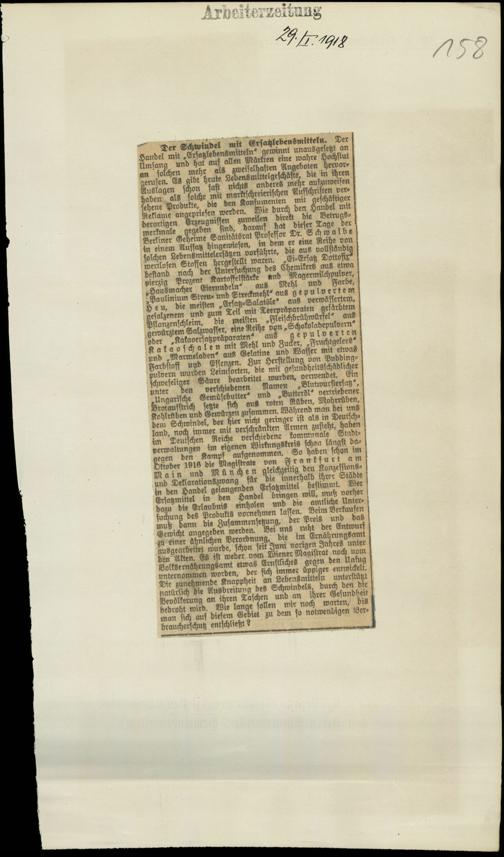 Arbeiterzeitung
29./I. 1918
158
Der Schwindel mit Ersatzlebensmitteln. Der
Handel mit „Ersatzlebensmitteln" gewinnt unausgesetzt an
Umfang und hat auf allen Märkten eine wahre Hochflut
an solchen mehr als zweifelhaften Angeboten hervor-
gerufen. Es gibt heute Lebensmittelgeschäfte, die in ihren
Auslagen schon fast nichts anderes mehr aufzuweisen
haben als solche mit marktschreierischen Aufschriften ver-
sehene Produkte, die den Konsumenten mit geschäftiger
Reklame angepriesen werden. Wie durch den Handel mit
derartigen Erzeugnissen zuweilen direkt die Betrugs-
merkmale gegeben sind, darauf hat dieser Tage der
Berliner Geheime Sanitätsrat Professor Dr. Schwalbe
in einem Aufsatz hingewiesen, in dem er eine Reihe von
solchen Lebensmittelersätzen vorführte, die aus vollständig
wertlosen Stoffen hergestellt waren. „Ei-Ersatz Dottofix"
bestand nach der Untersuchung des Chemikers aus etwa
vierzig Prozent Kartoffelstärke und Magermilchpulver,
„Hausmacher Eiernudeln" aus Mehl und Farbe,
„Paulinium Streu- und Streckmehl" aus gepulvertem
Heu, die meisten „Ersatz-Salatöle" aus verwässertem,
gesalzenem und zum Teil mit Teerpräparaten gefärbtem
Pflanzenschleim, die meisten „Fleischbrühwürfel" aus
gewürztem Salzwasser, eine Reihe von „Schokoladepulvern"
oder „Kakaoersatzpräparaten" aus gepulverten
Kakaoschalen mit Mehl und Zucker, „Fruchtgelees"
und „Marmeladen" aus Gelatine und Wasser mit etwas
Farbstoff und Essenzen. Zur Herstellung von Pudding-
pulvern wurden Leimsorten, die mit gesundheitsschädlicher
schwefeliger Säure bearbeitet wurden, verwendet. Ein
unter den verschiedenen Namen „Blutwurstersatz",
„Ungarische Gemüsebutter" und „Butterol" vertriebener
Brotaufstrich setzte sich aus roten Rüben, Mohrrüben,
Kohlrüben und Gewürzen zusammen. Während man bei uns
dem Schwindel, der hier nicht geringer ist als in Deutsch-
land, noch immer mit verschränkten Armen zusieht, haben
im Deutschen Reiche verschiedene kommunale Stadt-
verwaltungen im eigenen Wirkungskreis schon längst da-
gegen den Kampf aufgenommen. So haben schon im
Oktober 1916 die Magistrate von Frankfurt am
Main und München gleichzeitig den Konzessions-
und Deklarationszwang für die innerhalb ihrer Städte
in den Handel gelangenden Ersatzmittel bestimmt. Wer
Ersatzmittel in den Handel bringen will, muß vorher
dazu die Erlaubnis einholen und die amtliche Unter-
suchung des Produkts vornehmen lassen. Beim Verkaufen
muß dann die Zusammensetzung, der Preis und das
Gewicht angegeben werden. Bei uns ruht der Entwurf
zu einer ähnlichen Verordnung, die im Ernährungsamt
ausgearbeitet wurde, schon seit Juni vorigen Jahres unter
den Akten. Es ist weder vom Wiener Magistrat noch vom
Volksernährungsamt etwas Ernstliches gegen den Unfug
unternommen worden, der sich immer üppiger entwickelt.
Die zunehmende Knappheit an Lebensmitteln unterstützt
natürlich die Ausbreitung des Schwindels, durch den die
Bevölkerung an ihren Taschen und an ihrer Gesundheit
bedroht wird. Wie lange sollen wir noch warten, bis
man sich auf diesem Gebiet zu dem so notwendigen Ver-
braucherschutz entschließt?